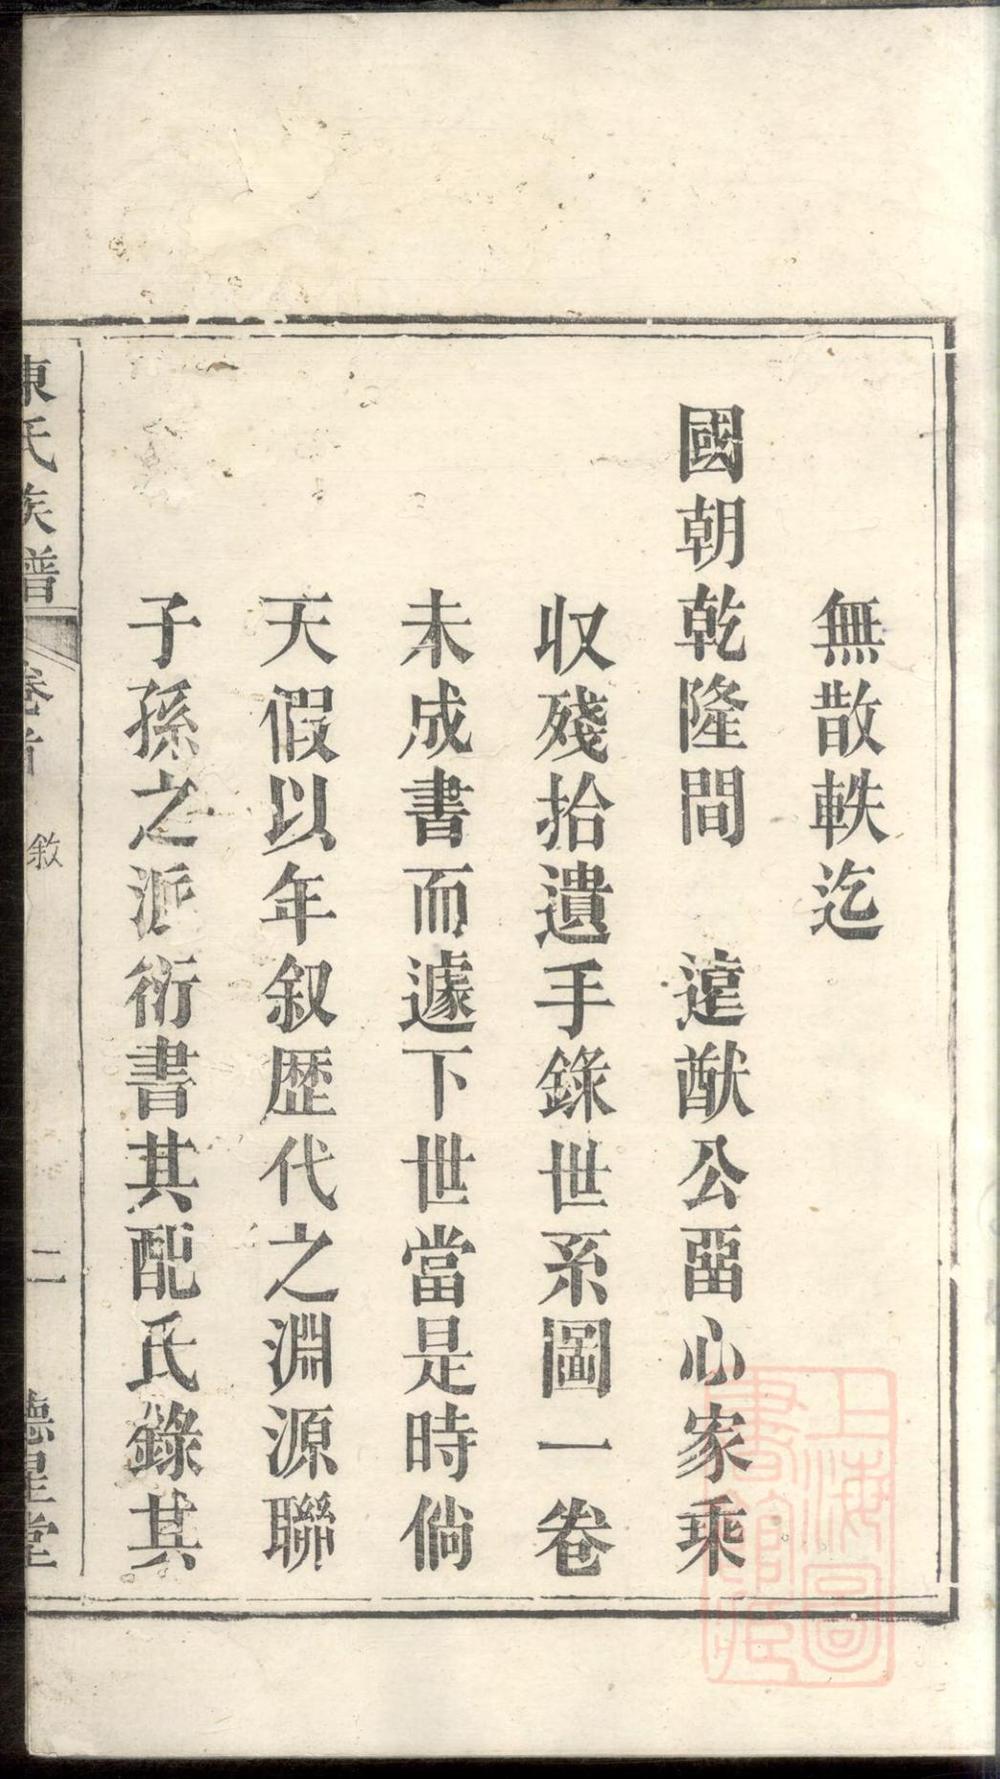 無散軼迄
國朝乾隆間 遠猷公畱心家乘
収殘拾遺手錄世系圖一卷
未成書而遽下世當是時倘
天假以年叙歷代之淵源聯
子孫之派衍書其配氏錄其
陳氏族譜 卷首 敘 二 德星堂
上海圖書館藏